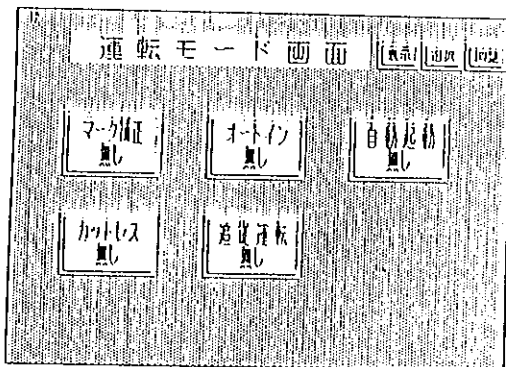 運転モード画面
表示
選択
マーク補正
無し
オートイン
無し
自動起動
無し
カットレス
無し
追従運転
無し